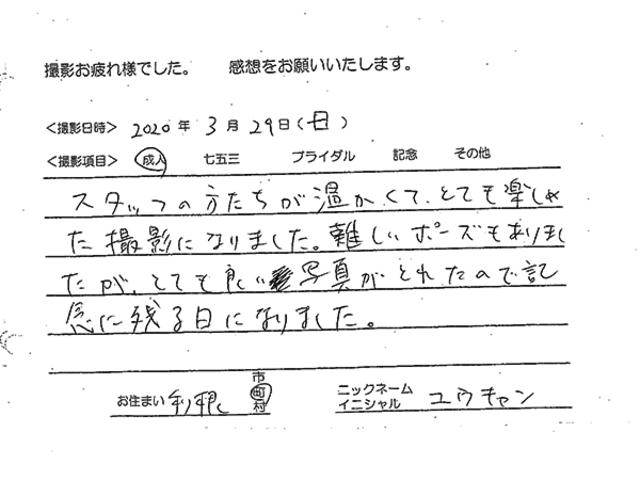 撮影お疲れ様でした。 感想をお願いいたします。
<撮影日時> 2020年 3月 29日(日)
<撮影項目> 成人 七五三 ブライダル 記念 その他
スタッフの方たちが温かくて、とても楽しめ
た撮影になりました。難しいポーズもありまし
たが、とても良い写真がとれたので記
念に残る日になりました。
お住まい 利根 市町村 ニックネーム イニシャル ユウキャン